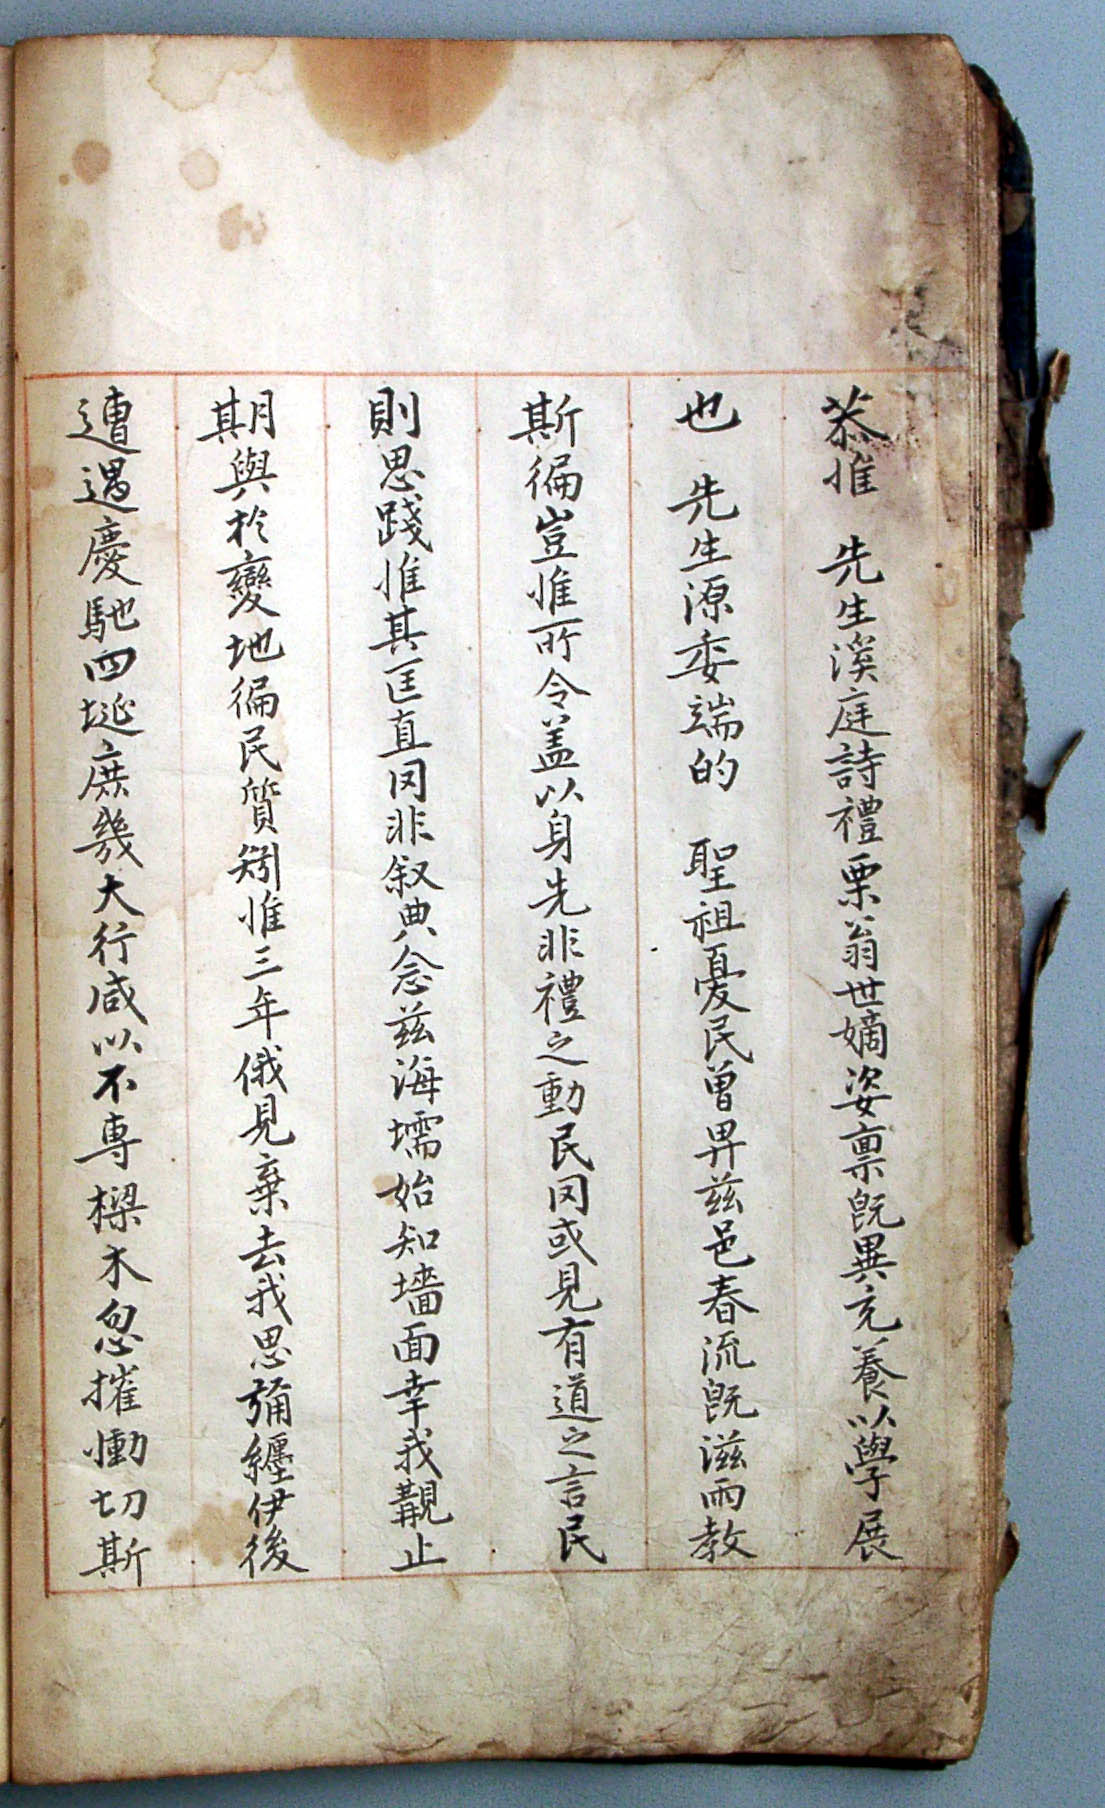 恭惟 先生溪庭詩禮栗翁世嫡姿禀旣異充養以學展
也 先生源委端的 聖祖憂民曾畀玆邑春流旣滋雨教
斯徧豈惟所令盖以身先非禮之動民罔或見有道之言民
則思踐惟其匡直罔非叙典念玆海壖始知墻面幸我覯止
期與於變地徧民質矧惟三年俄見棄去我思彌纏伊後
遭遇慶馳四埏庶幾大行咸以不專樑木忽摧慟切斯